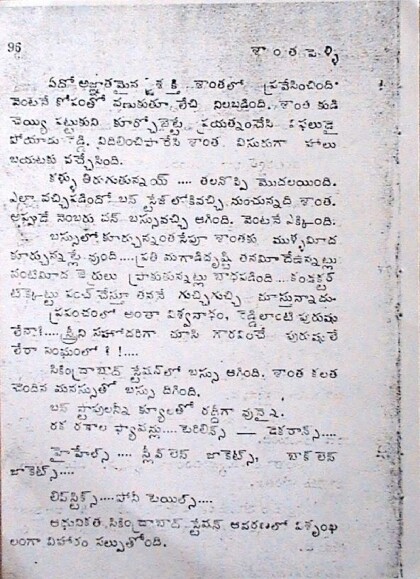 96
శాంత పెళ్ళి
ఏదో అజ్ఞాతమైన శక్తి శాంతలో ప్రవేసించింది
వెంటనే కోపంతో వణుకుతూ లేచి నిలబడింది. శాంత కుడి
చెయ్యి పట్టుకుని కూర్చోపెట్టే ప్రయత్నంచేసి విఫలుడై
పోయాడు రెడ్డి. విదిలించిపారేసి శాంత విసురుగా హాలు
బయటకు వచ్చేసింది.
కళ్ళు తిరుగుతున్నయ్ .... తలనొప్పి మొదలయింది.
ఎల్లా వచ్చిపడిందో బస్ స్టేజ్ లోకివచ్చి నుంచున్నది శాంత.
అప్పుడే నెంబరు వన్ బస్సువచ్చి ఆగింది. వెంటనే ఎక్కింది.
బస్సులో కూర్చున్నంతసేపూ శాంతకు ముళ్ళమీద
కూర్చున్నట్లే వుంది....ప్రతి మగాడిదృష్టి తనమీదేఉన్నట్లు
వంటిమీద జెర్రులు ప్రాకుతున్నట్లు బాధపడింది....కండక్టర్
టిక్కెట్టు పంచ్ చేస్తూ తననే గుచ్చిగుచ్చి చూస్తున్నాడు
ప్రపంచంలో అంతా విశ్వనాధం, రెడ్డిలాంటి పురుషు
లేనా?....స్త్రీని సహోదరిగా చూసి గౌరవించే పురుషులే
లేరా సంఘంలో ? !....
సికింద్రాబాద్ స్టేషన్‌లో బస్సు ఆగింది. శాంత కలత
చెందిన మనస్సుతో బస్సు దిగింది.
బస్ స్టాపులన్నీ క్యూలతో రద్దీగా వున్నై.
రక రకాల ఫ్యాషన్లు....టెరిలిన్స్ — డెకరాన్స్....
హైహీల్స్ .... స్లీవ్ లెస్ జాకెట్స్, బాక్ లెస్
జాకెట్స్....
లిప్‌స్టిక్స్....పోనీ టెయిల్స్....
ఆధునికత సికింద్రాబాద్ స్టేషన్ ఆవరణలో విశృంఖ
లంగా విహారం సల్పుతోంది.